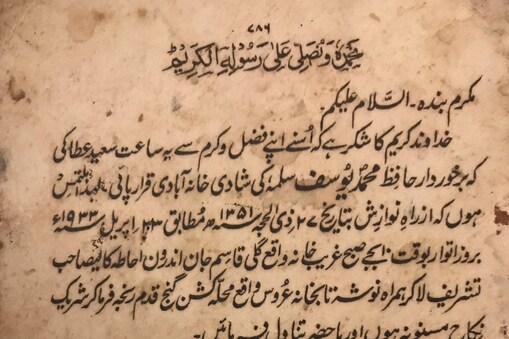 ۷۸۶
نحمدہ و نصلی علیٰ رسولہ الکریم
مکرم بندہ۔ السلام علیکم۔
خداوند کریم کا شکر ہے کہ اُسنے اپنے فضل و کرم سے یہ ساعت سعید عطا کی
کہ برخوردار حافظ محمد یوسف سلمہ کی شادی خانہ آبادی قرار پائی لہذا ملتمس
ہوں کہ از راہ نوازش بتاریخ ۲۷ ذی الحجہ ۱۳۵۱ھ مطابق ۲۳ اپریل سنہ ۱۹۳۳ء
بروز اتوار بوقت ۱۰ بجے صبح غریب خانہ واقع گلی قاسم جان اندرون احاطہ کالیصاحب
تشریف لاکر ہمراہ نوشہ تا بخانہ عروس واقع محلہ کشن گنج قدم رنجہ فرماکر شریک
نکاح مسنونہ ہوں اور ماحضر تناول فرمائیں۔